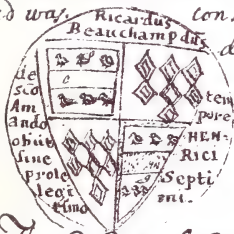 d was. Ricardus Con.
Beauchamp dns
de
Sco
Am
ando
obiit
sine
prole
legi
timo
tem
pore
HEN-
RICI
Septi
mi.